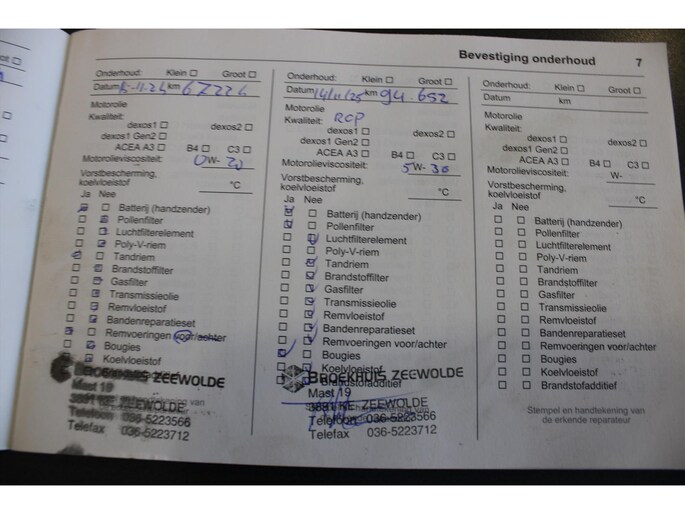 Bevestiging onderhoud 7
Onderhoud: Klein ☐ Groot ☐
Datum -11-24 km 67226
Motorolie
Kwaliteit:
dexos1 ☐ dexos2 ☐
dexos1 Gen2 ☐
ACEA A3 ☐ B4 ☐ C3 ☐
Motorolieviscositeit: 0W- 20
Vorstbescherming,
koelvloeistof °C
Ja Nee
Batterij (handzender)
Pollenfilter
Luchtfilterelement
Poly-V-riem
Tandriem
Brandstoffilter
Gasfilter
Transmissieolie
Remvloeistof
Bandenreparatieset
Remvoeringen voor/achter
Bougies
Koelvloeistof
BROEKHUIS ZEEWOLDE
Mast 19
3891 KE ZEEWOLDE
Telefoon 036-5223566
Telefax 036-5223712
Onderhoud: Klein ☐ Groot ☐
Datum 14/11/25 km 94.652
Motorolie
Kwaliteit: RCP
dexos1 ☐ dexos2 ☐
dexos1 Gen2 ☐
ACEA A3 ☐ B4 ☐ C3 ☐
Motorolieviscositeit: 5W- 30
Vorstbescherming,
koelvloeistof °C
Ja Nee
Batterij (handzender)
Pollenfilter
Luchtfilterelement
Poly-V-riem
Tandriem
Brandstoffilter
Gasfilter
Transmissieolie
Remvloeistof
Bandenreparatieset
Remvoeringen voor/achter
Bougies
Koelvloeistof
Brandstofadditief
BROEKHUIS ZEEWOLDE
Mast 19
3891 KE ZEEWOLDE
Telefoon 036-5223566
Telefax 036-5223712
Onderhoud: Klein ☐ Groot ☐
Datum km
Motorolie
Kwaliteit:
dexos1 ☐ dexos2 ☐
dexos1 Gen2 ☐
ACEA A3 ☐ B4 ☐ C3 ☐
Motorolieviscositeit: W-
Vorstbescherming,
koelvloeistof °C
Ja Nee
☐ ☐ Batterij (handzender)
☐ ☐ Pollenfilter
☐ ☐ Luchtfilterelement
☐ ☐ Poly-V-riem
☐ ☐ Tandriem
☐ ☐ Brandstoffilter
☐ ☐ Gasfilter
☐ ☐ Transmissieolie
☐ ☐ Remvloeistof
☐ ☐ Bandenreparatieset
☐ ☐ Remvoeringen voor/achter
☐ ☐ Bougies
☐ ☐ Koelvloeistof
☐ ☐ Brandstofadditief
Stempel en handtekening van
de erkende reparateur